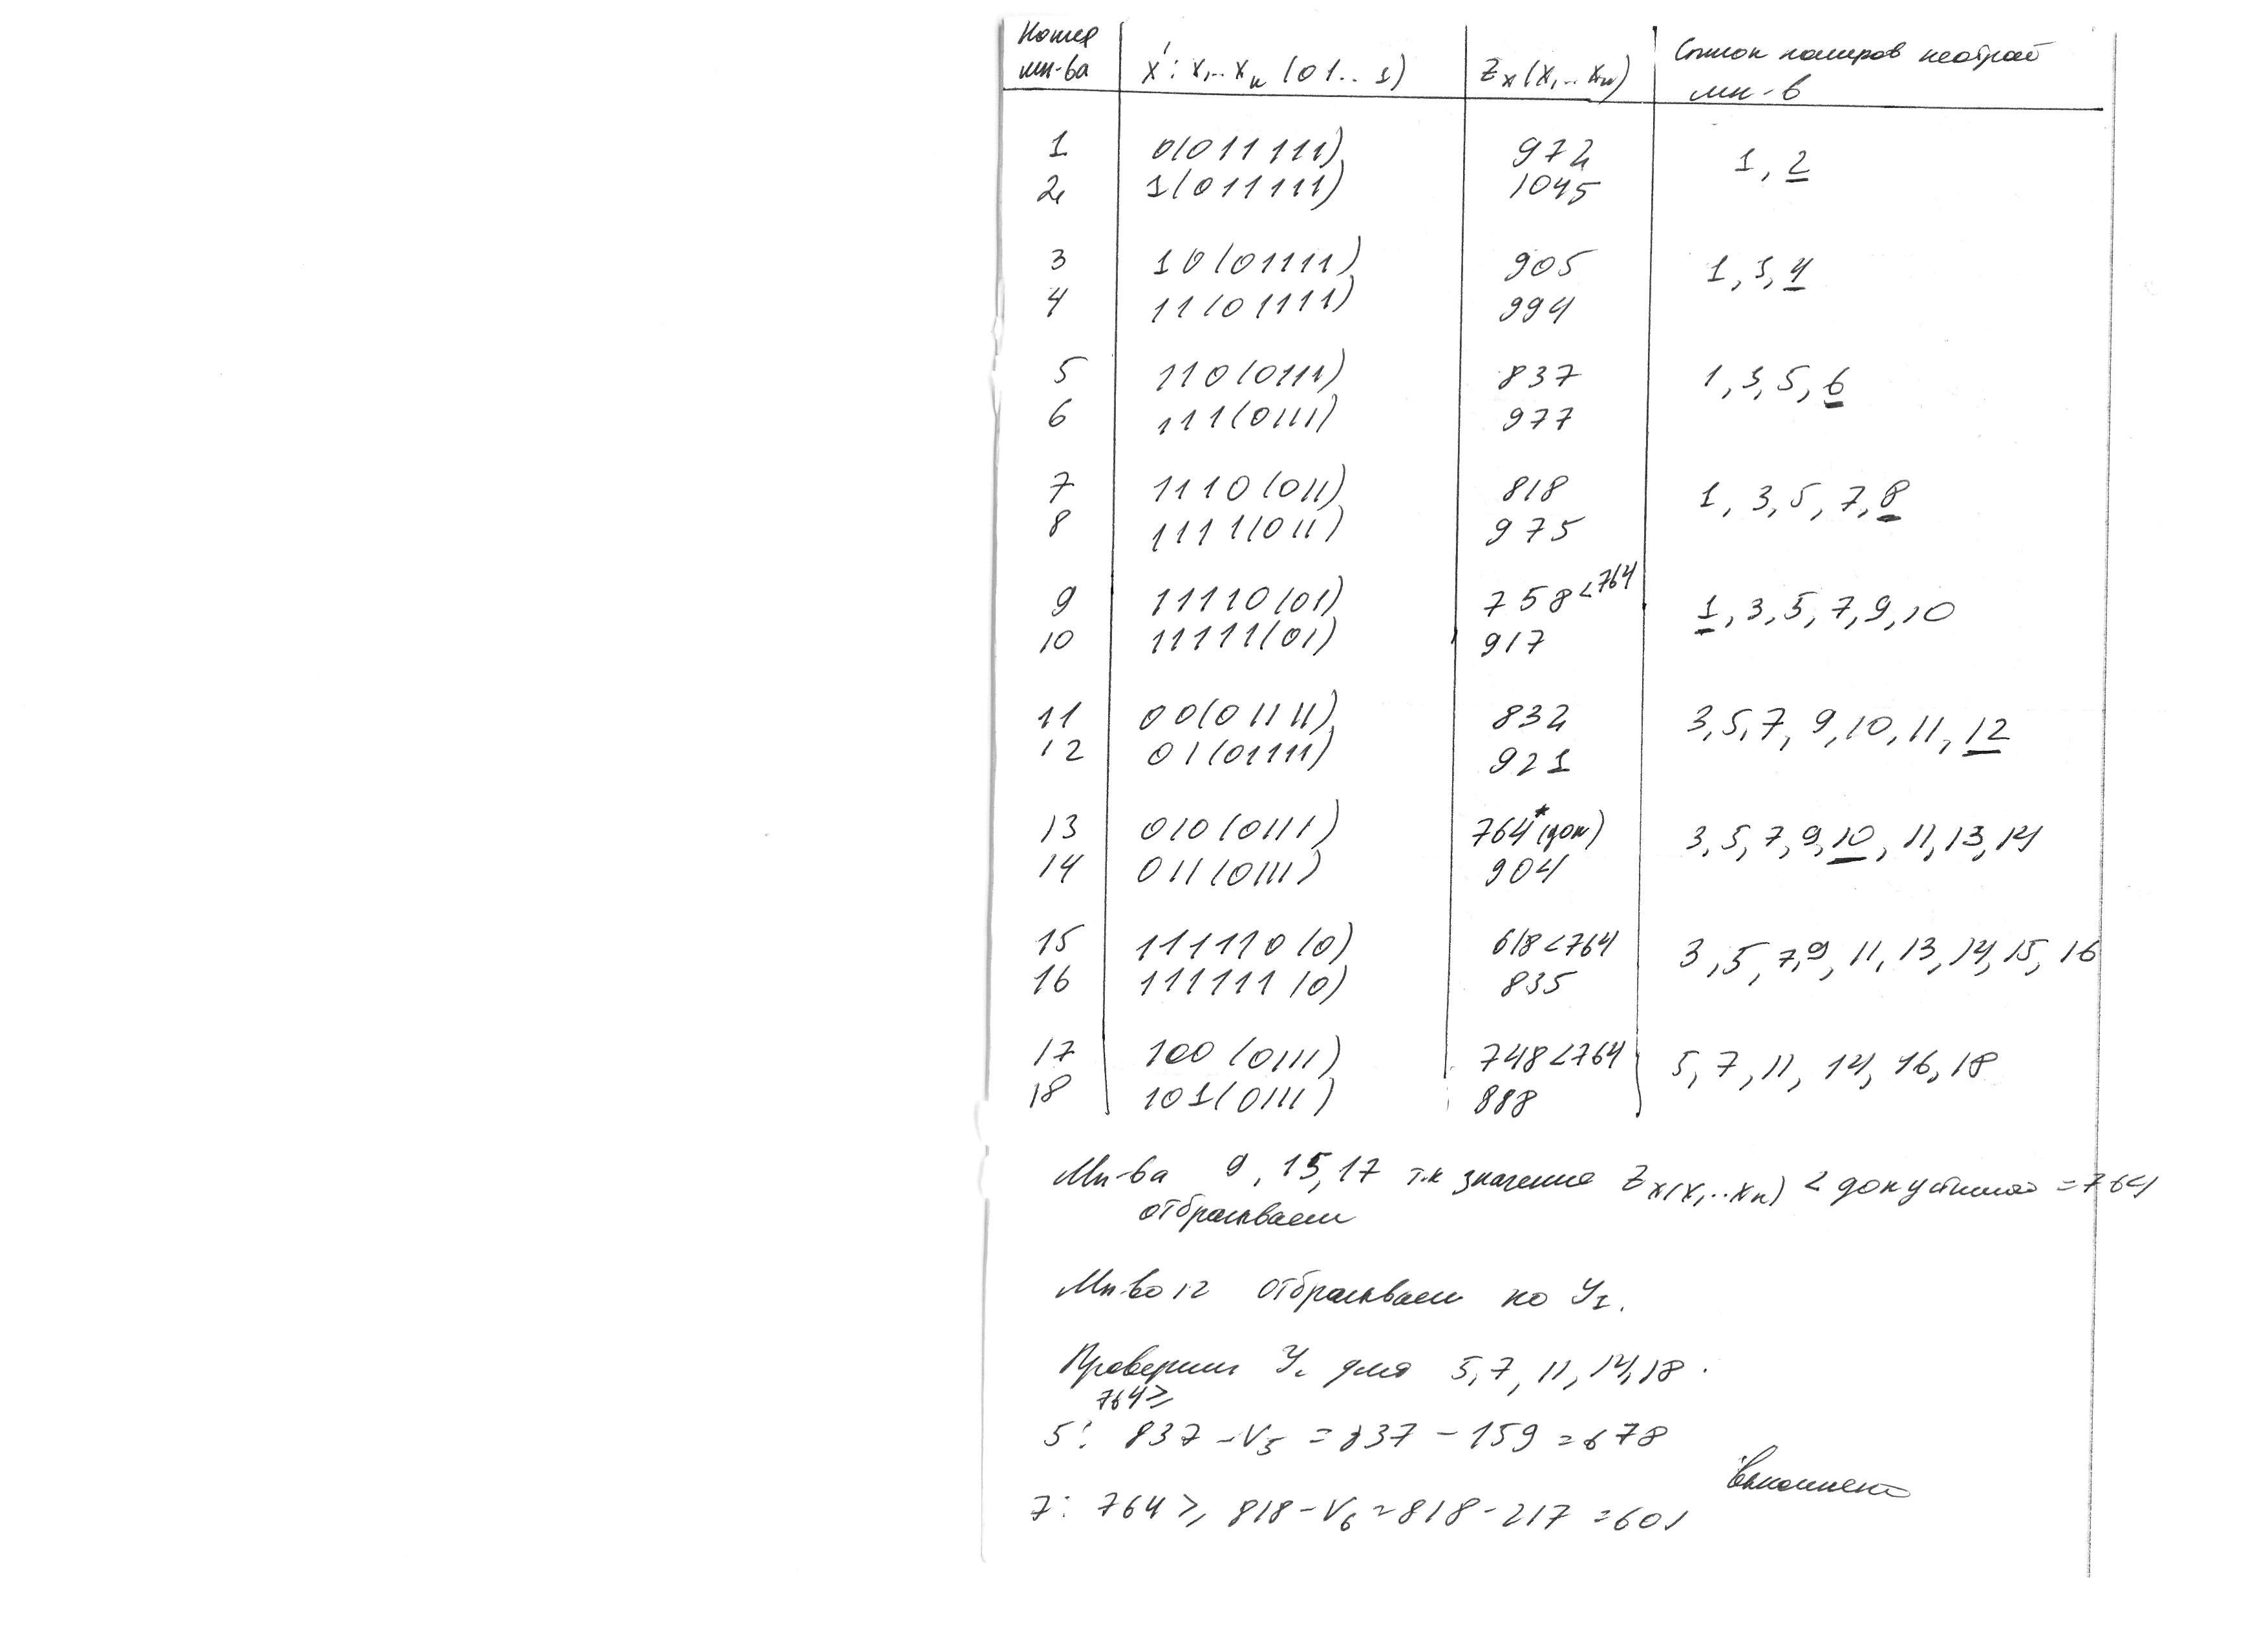 Номер мн-ва | X': x₁..xₙ (01..1) | Zₓ(x₁..xₙ) | Список номеров неотбр мн-в
1 0(011111) 972 1, 2
2 1(011111) 1045
3 10(01111) 905 1, 3, 4
4 11(01111) 994
5 110(0111) 837 1, 3, 5, 6
6 111(0111) 977
7 1110(011) 818 1, 3, 5, 7, 8
8 1111(011) 975
9 11110(01) 758<764 1, 3, 5, 7, 9, 10
10 11111(01) 917
11 00(01111) 832 3, 5, 7, 9, 10, 11, 12
12 01(01111) 921
13 010(0111) 764*(доп) 3, 5, 7, 9, 10, 11, 13, 14
14 011(0111) 904
15 111110(0) 618<764 3, 5, 7, 9, 11, 13, 14, 15, 16
16 111111(0) 835
17 100(0111) 748<764 5, 7, 11, 14, 16, 18
18 101(0111) 888
Мн-ва 9, 15, 17 т.к значение Zₓ(x₁..xₙ) < допустимого = 764
отбрасываем
Мн-во 12 отбрасываем по У₁.
Проверим У₁ для 5, 7, 11, 14, 18.
764 ≥
5: 837 - V₅ = 837 - 159 = 678
выполнено
7: 764 ≥ 818 - V₆ = 818 - 217 = 601